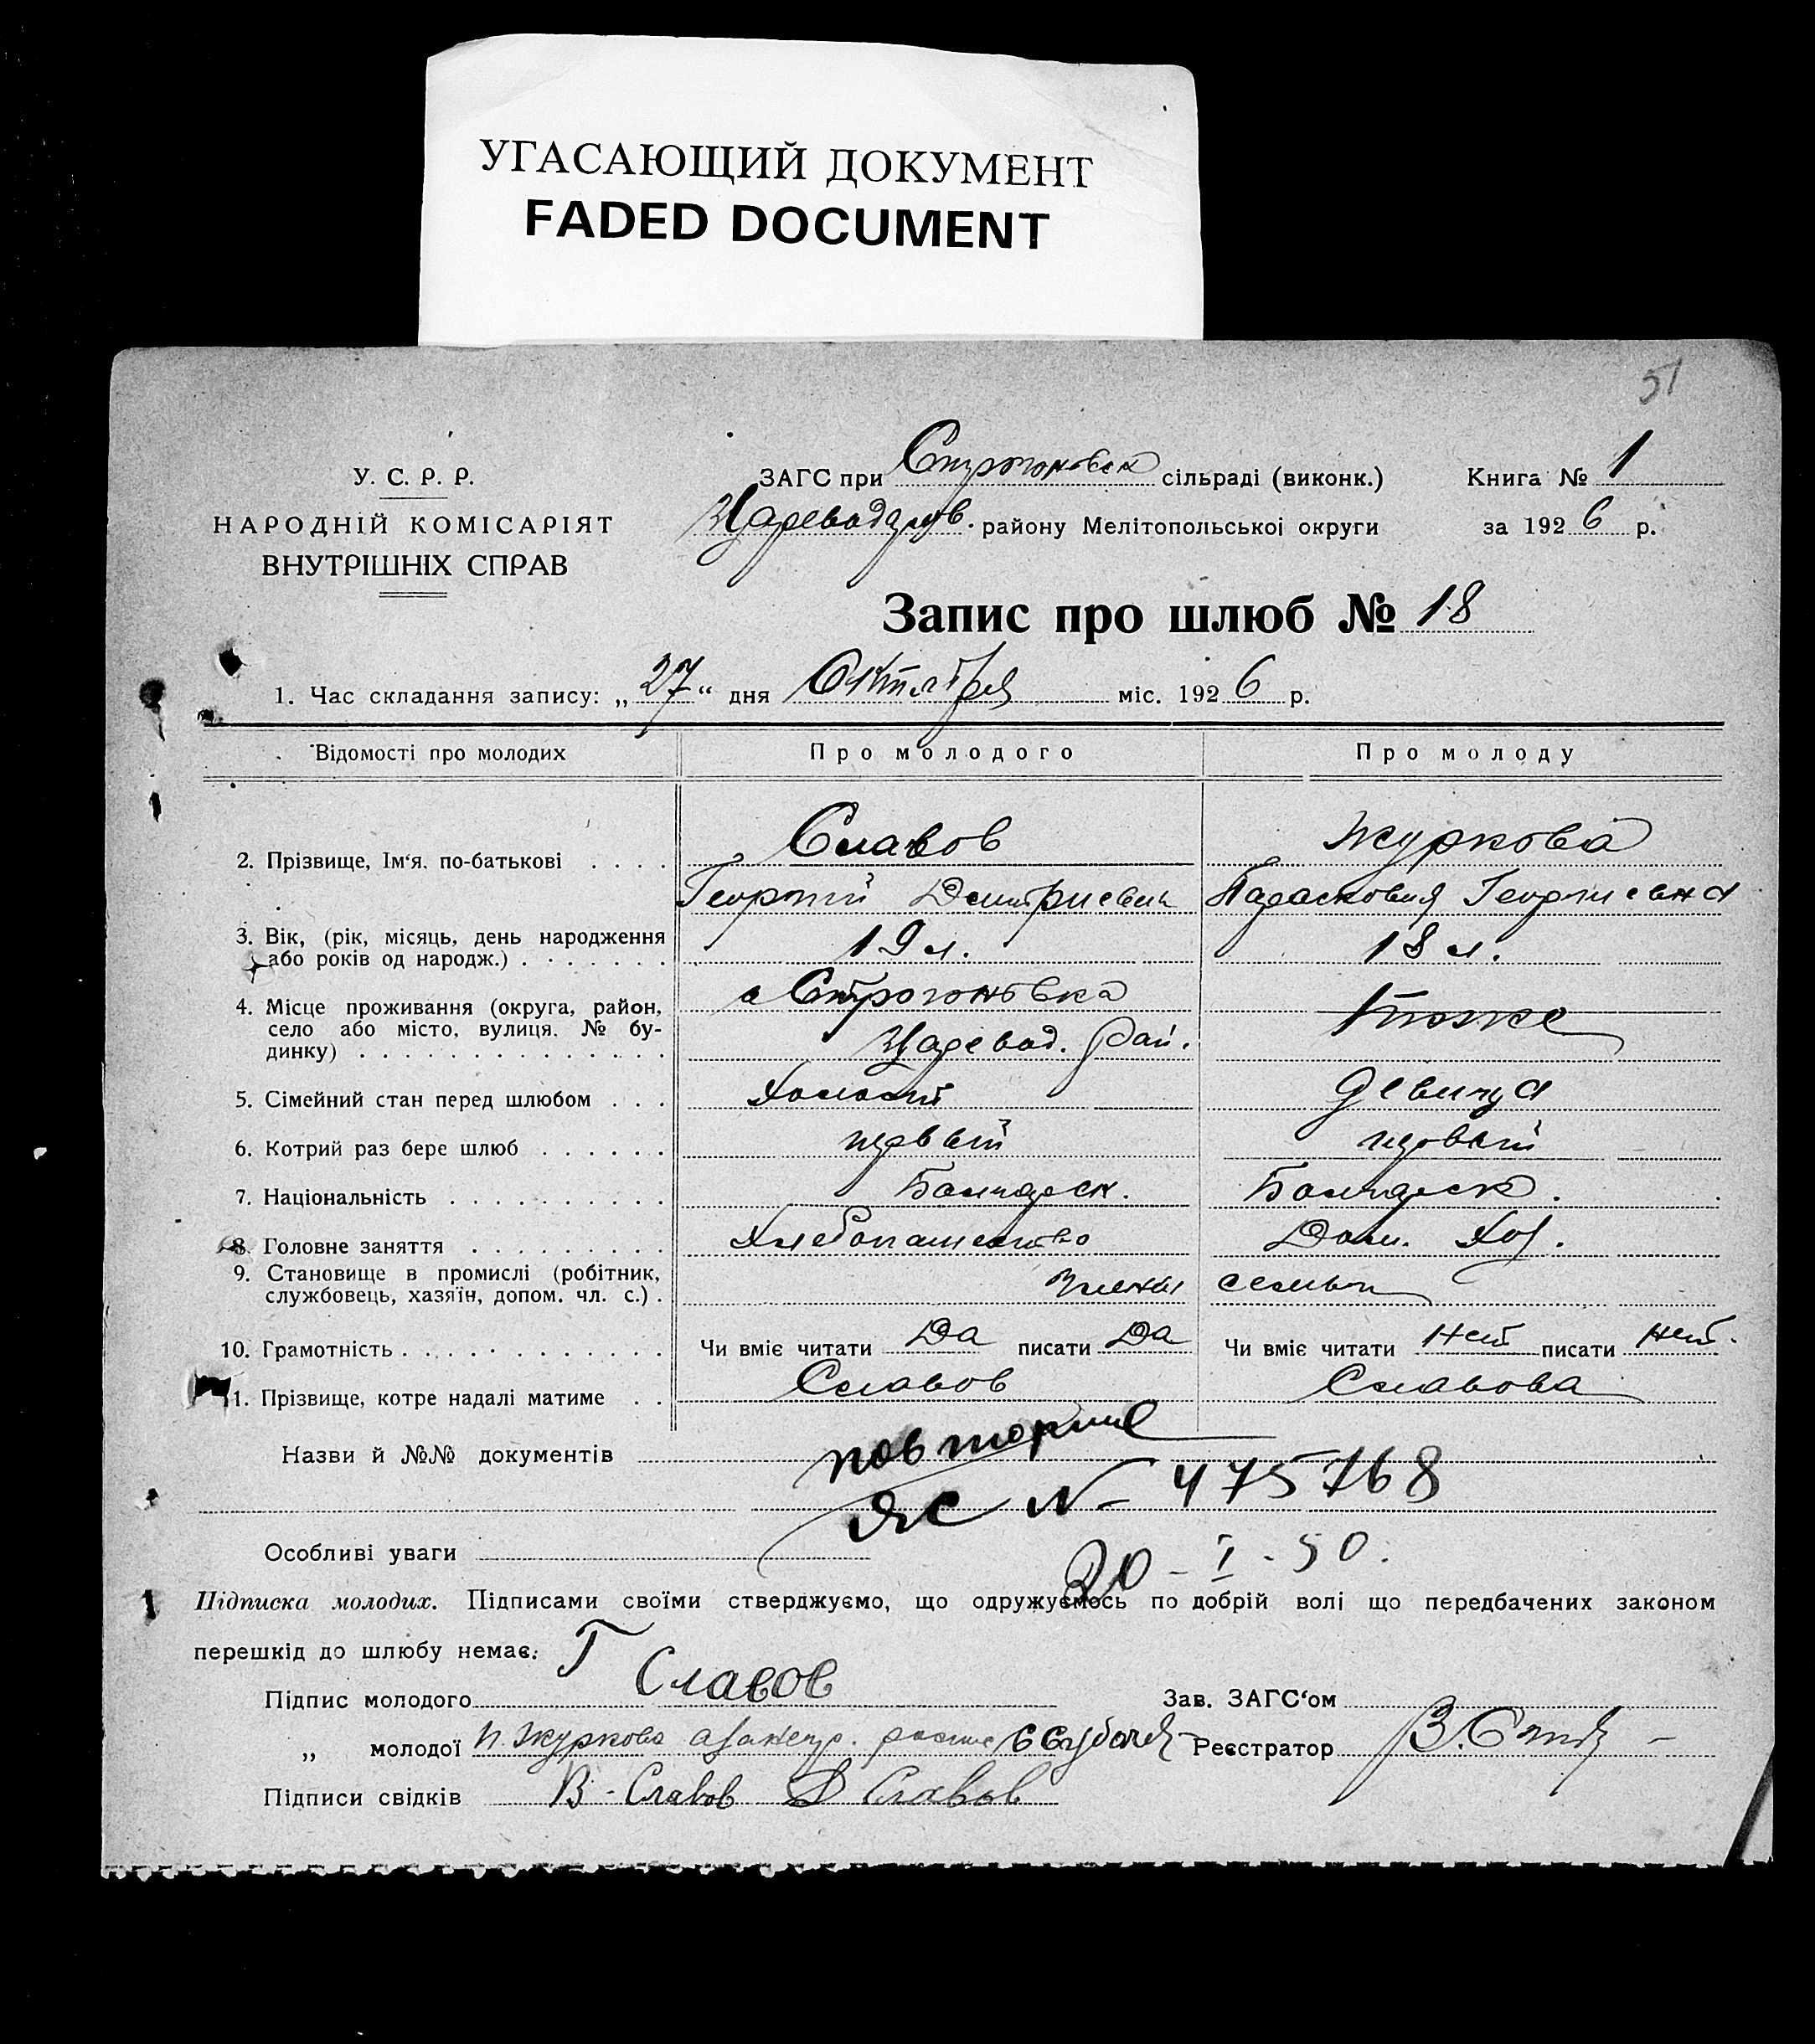 УГАСАЮЩИЙ ДОКУМЕНТ
FADED DOCUMENT
51
У. С. Р. Р.
НАРОДНІЙ КОМІСАРІЯТ
ВНУТРІШНІХ СПРАВ
ЗАГС при Строгоновск сільраді (виконк.)
Цареводаров. району Мелітопольської округи
Книга № 1
за 1926 р.
Запис про шлюб № 18
1. Час складання запису: „27“ дня Октября міс. 1926 р.
Відомості про молодих Про молодого Про молоду
2. Прізвище, Ім'я, по-батькові . . . . Славов Журкова
Георгий Дмитриевич Парасковия Георгиевна
3. Вік, (рік, місяць, день народження або років од народж.) . . . . . . . 19 л. 18 л.
4. Місце проживання (округа, район, село або місто, вулиця. № будинку) . . . . . . . . . . . . . . с Строгоновка Царевод. рай. тоже
5. Сімейний стан перед шлюбом . . . Холостй девица
6. Котрий раз бере шлюб . . . . . . первый первый
7. Національність . . . . . . . . . . Болгарск. Болгарск.
8. Головне заняття . . . . . . . . . Хлебопашество Дом. Хоз.
9. Становище в промислі (робітник, службовець, хазяїн, допом. чл. с.) . члены семьи
10. Грамотність . . . . . . . . . . . . Чи вміє читати Да писати Да Чи вміє читати Нет писати Нет.
11. Прізвище, котре надалі матиме . . Славов Славова
Назви й №№ документів повторне
ЯС N- 475768
Особливі уваги 20 - I - 50.
Підписка молодих. Підписами своїми стверджуємо, що одружуємось по добрій волі що передбачених законом
перешкід до шлюбу немає.
Підпис молодого Г Славов Зав. ЗАГС'ом
„ молодої П. Журкова Реєстратор
Підписи свідків В - Славов Д Славов